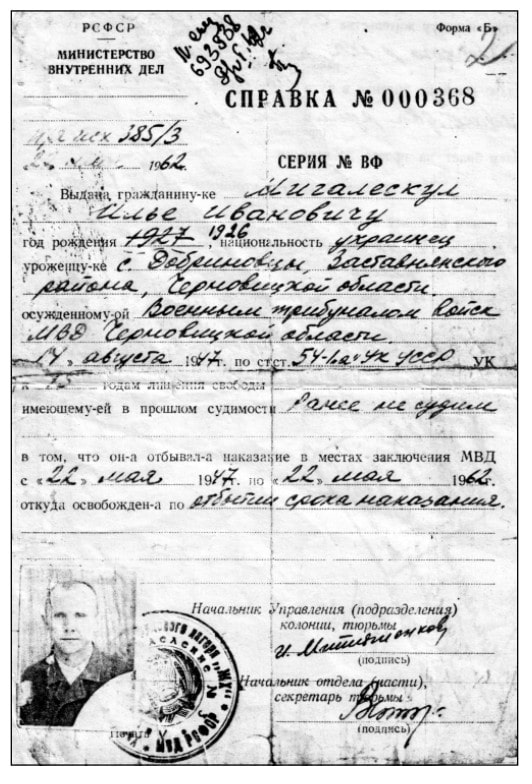 РСФСР
Форма «Б»
МИНИСТЕРСТВО
ВНУТРЕННИХ ДЕЛ
693538
СПРАВКА № 000368
385/3
1962.
СЕРИЯ № ВФ
Выдана гражданину-ке Мигалескул
Илье Ивановичу
год рождения 1927 1926, национальность украинец
уроженцу-ке с. Добриновцы, Заставнянского
района, Черновицкой области.
осужденному-ой Военным трибуналом войск
МВД Черновицкой области.
„14„ августа 1947 г. по ст.ст. 54-1„а" УК УССР УК
к 15 годам лишения свободы
имеющему-ей в прошлом судимости Ранее не судим
в том, что он-а отбывал-а наказание в местах заключения МВД
с «22„ мая 1947 г. по «22„ мая 1962 г.
откуда освобожден-а по отбытии срока наказания.
Начальник Управления (подразделения)
колонии, тюрьмы
(подпись)
Начальник отдела (части),
секретарь тюрьмы
(подпись)
Печать
МВД РСФСР